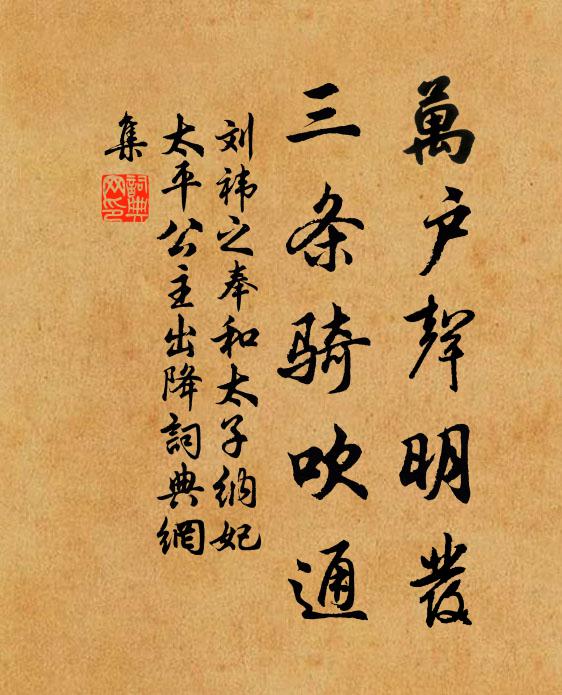 萬戶聲明發
三条騎吹通
刘祎之奉和太子纳妃
太平公主出降詞典網
集
詞典
网印